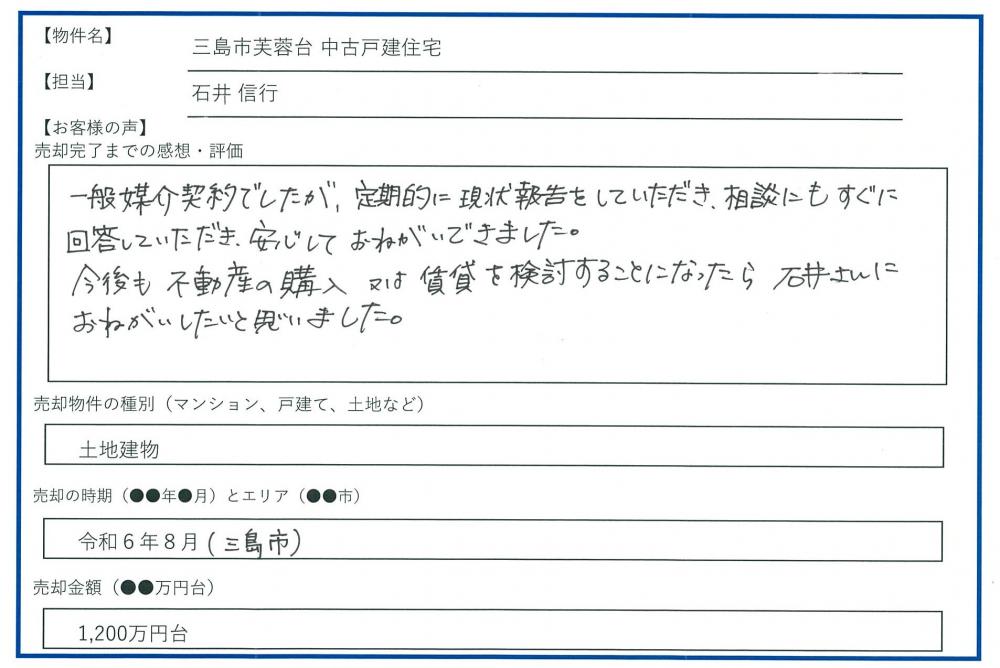 【物件名】
三島市芙蓉台 中古戸建住宅
【担当】
石井 信行
【お客様の声】
売却完了までの感想・評価
一般媒介契約でしたが、定期的に現状報告をしていただき、相談にもすぐに
回答していただき、安心して おねがいできました。
今後も 不動産の購入 又は 賃貸を検討することになったら 石井さんに
おねがいしたいと思いました。
売却物件の種別（マンション、戸建て、土地など）
土地建物
売却の時期（●●年●月）とエリア（●●市）
令和６年８月(三島市)
売却金額（●●万円台）
1,200万円台